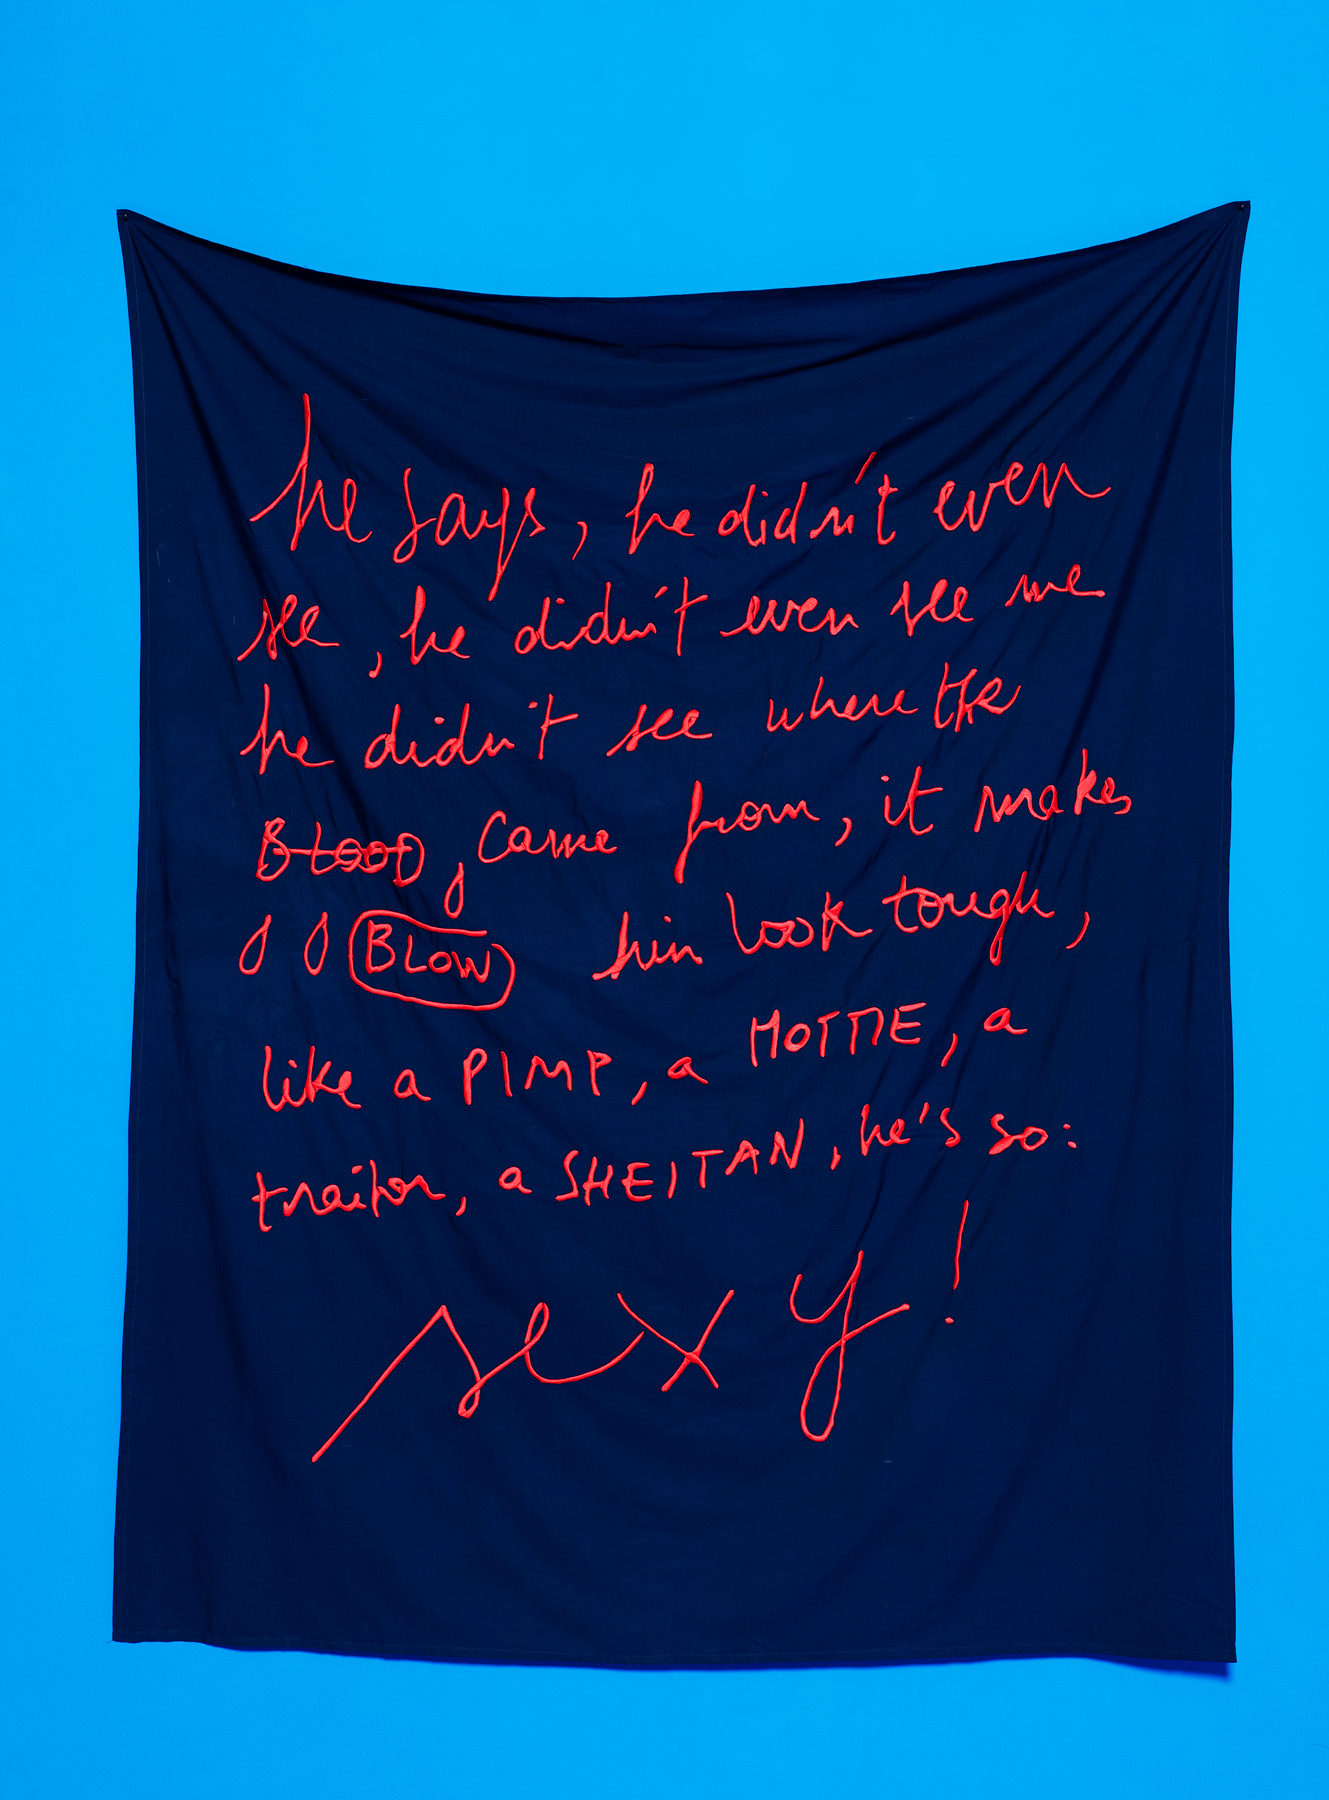 he says, he didn't even
see, he didn't even see me
he didn't see where the
BLOOD, came from, it makes
BLOW him look tough,
like a PIMP, a MOTTIE, a
traitor, a SHEITAN, he's so:
sexy!